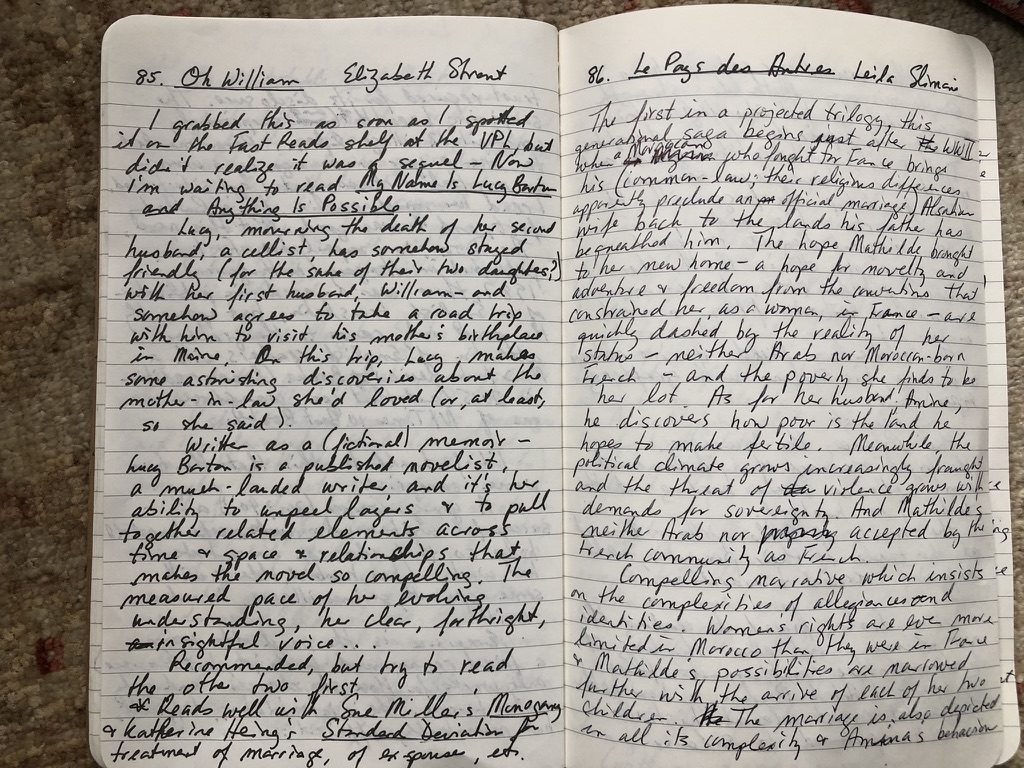 85. Oh William Elizabeth Strout
I grabbed this as soon as I spotted
it on the Fast Reads shelf at the VPL, but
didn't realize it was a sequel - Now
I'm waiting to read My Name Is Lucy Barton
and Anything Is Possible
Lucy, mourning the death of her second
husband, a cellist, has somehow stayed
friendly (for the sake of their two daughters?)
with her first husband, William - and
somehow agrees to take a road trip
with him to visit his mother's birthplace
in Maine. On this trip, Lucy makes
some astonishing discoveries about the
mother-in-law she'd loved (or, at least,
so she said).
Written as a (fictional) memoir -
Lucy Barton is a published novelist,
a much-lauded writer, and it's her
ability to unpeel layers & to pull
together related elements across
time & space & relationships that
makes the novel so compelling. The
measured pace of her evolving
understanding, her clear, forthright,
insightful voice...
Recommended, but try to read
the other two first
* Reads well with Sue Miller's Monogamy
& Katherine Heiny's Standard Deviation for
treatment of marriage, of ex-spouse, etc.
86. Le Pays des Autres Leila Slimani
The first in a projected trilogy, this
generational saga begins just after WWII -
when a Moroccan who fought for France brings
his (common-law; their religious differences
apparently preclude an official marriage) Alsatian
wife back to the lands his father has
bequeathed him. The hope Mathilde brought
to her new home - a hope for novelty and
adventure & freedom from the conventions that
constrained her, as a woman, in France - are
quickly dashed by the reality of her
status - neither Arab nor Moroccan-born
French - and the poverty she finds to be
her lot. As for her husband, Amine,
he discovers how poor is the land he
hopes to make fertile. Meanwhile, the
political climate grows increasingly fraught
and the threat of violence grows with
demands for sovereignty. And Mathilde's
neither Arab nor accepted by the
French community as French.
Compelling narrative which insists
on the complexities of allegiances and
identities. Women's rights are even more
limited in Morocco than they were in France
& Mathilde's possibilities are narrowed
further with the arrive of each of her two
children. The marriage is also depicted
in all its complexity & behaviour